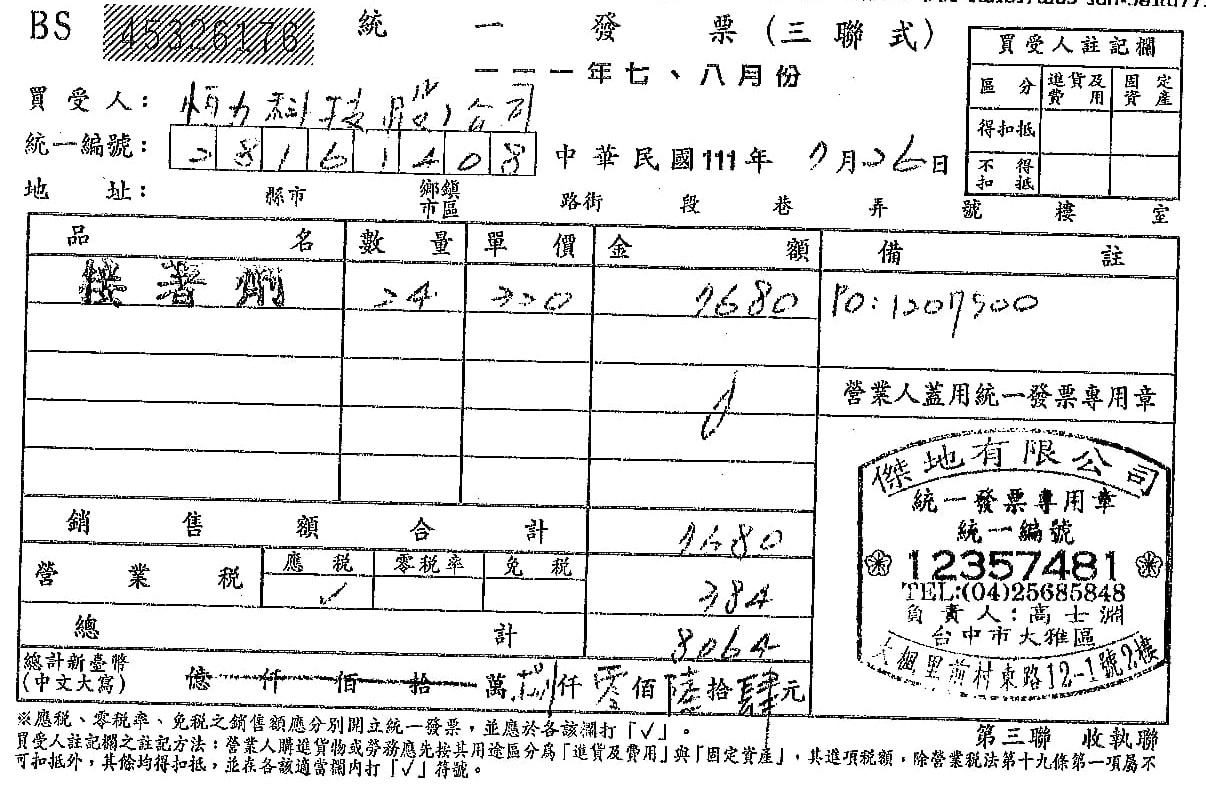 BS 45326176 統一發票(三聯式)
一一一年七、八月份
買受人註記欄
區分 進貨及費用 固定資產
得扣抵
不得扣抵
買受人: 科技股公司
統一編號: 28161408 中華民國111年 7月26日
地址: 縣市 鄉鎮市區 路街 段 巷 弄 號 樓 室
品名 數量 單價 金額 備註
接著劑 24 320 7680 PO:1207500
營業人蓋用統一發票專用章
銷售額合計 7680
營業稅 應稅 零稅率 免稅
✓ 384
總計 8064
總計新臺幣(中文大寫) 億仟佰拾萬捌仟零佰陸拾肆元
傑地有限公司
統一發票專用章
統一編號
12357481
TEL:(04)25685848
負責人:高士淵
台中市大雅區
大楓里前村東路12-1號2樓
※應稅、零稅率、免稅之銷售額應分別開立統一發票,並應於各該欄打「✓」。
第三聯 收執聯
買受人註記欄之註記方法:營業人購進貨物或勞務應先按其用途區分為「進貨及費用」與「固定資產」,其進項稅額,除營業稅法第十九條第一項屬不
可扣抵外,其餘均得扣抵,並在各該適當欄內打「✓」符號。